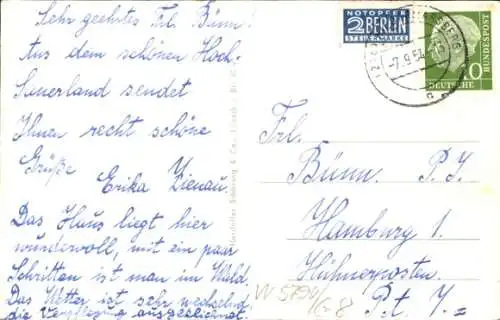 Sehr geehrtes Frl. Bünn.
Aus dem schönen Hoch-
Sauerland sendet
Ihnen recht schöne
Grüße
Erika Zienau.
Das Haus liegt hier
wundervoll, mit ein paar
Schritten ist man im Wald.
Das Wetter ist sehr wechselnd
die Verpflegung ausgezeichnet.
NOTOPFER
2 BERLIN
STEUERMARKE
-7.9.54
10
DEUTSCHE
BUNDESPOST
Frl.
Bünn. P.J.
Hamburg 1.
Hühnerposten.
P.t.Y.=